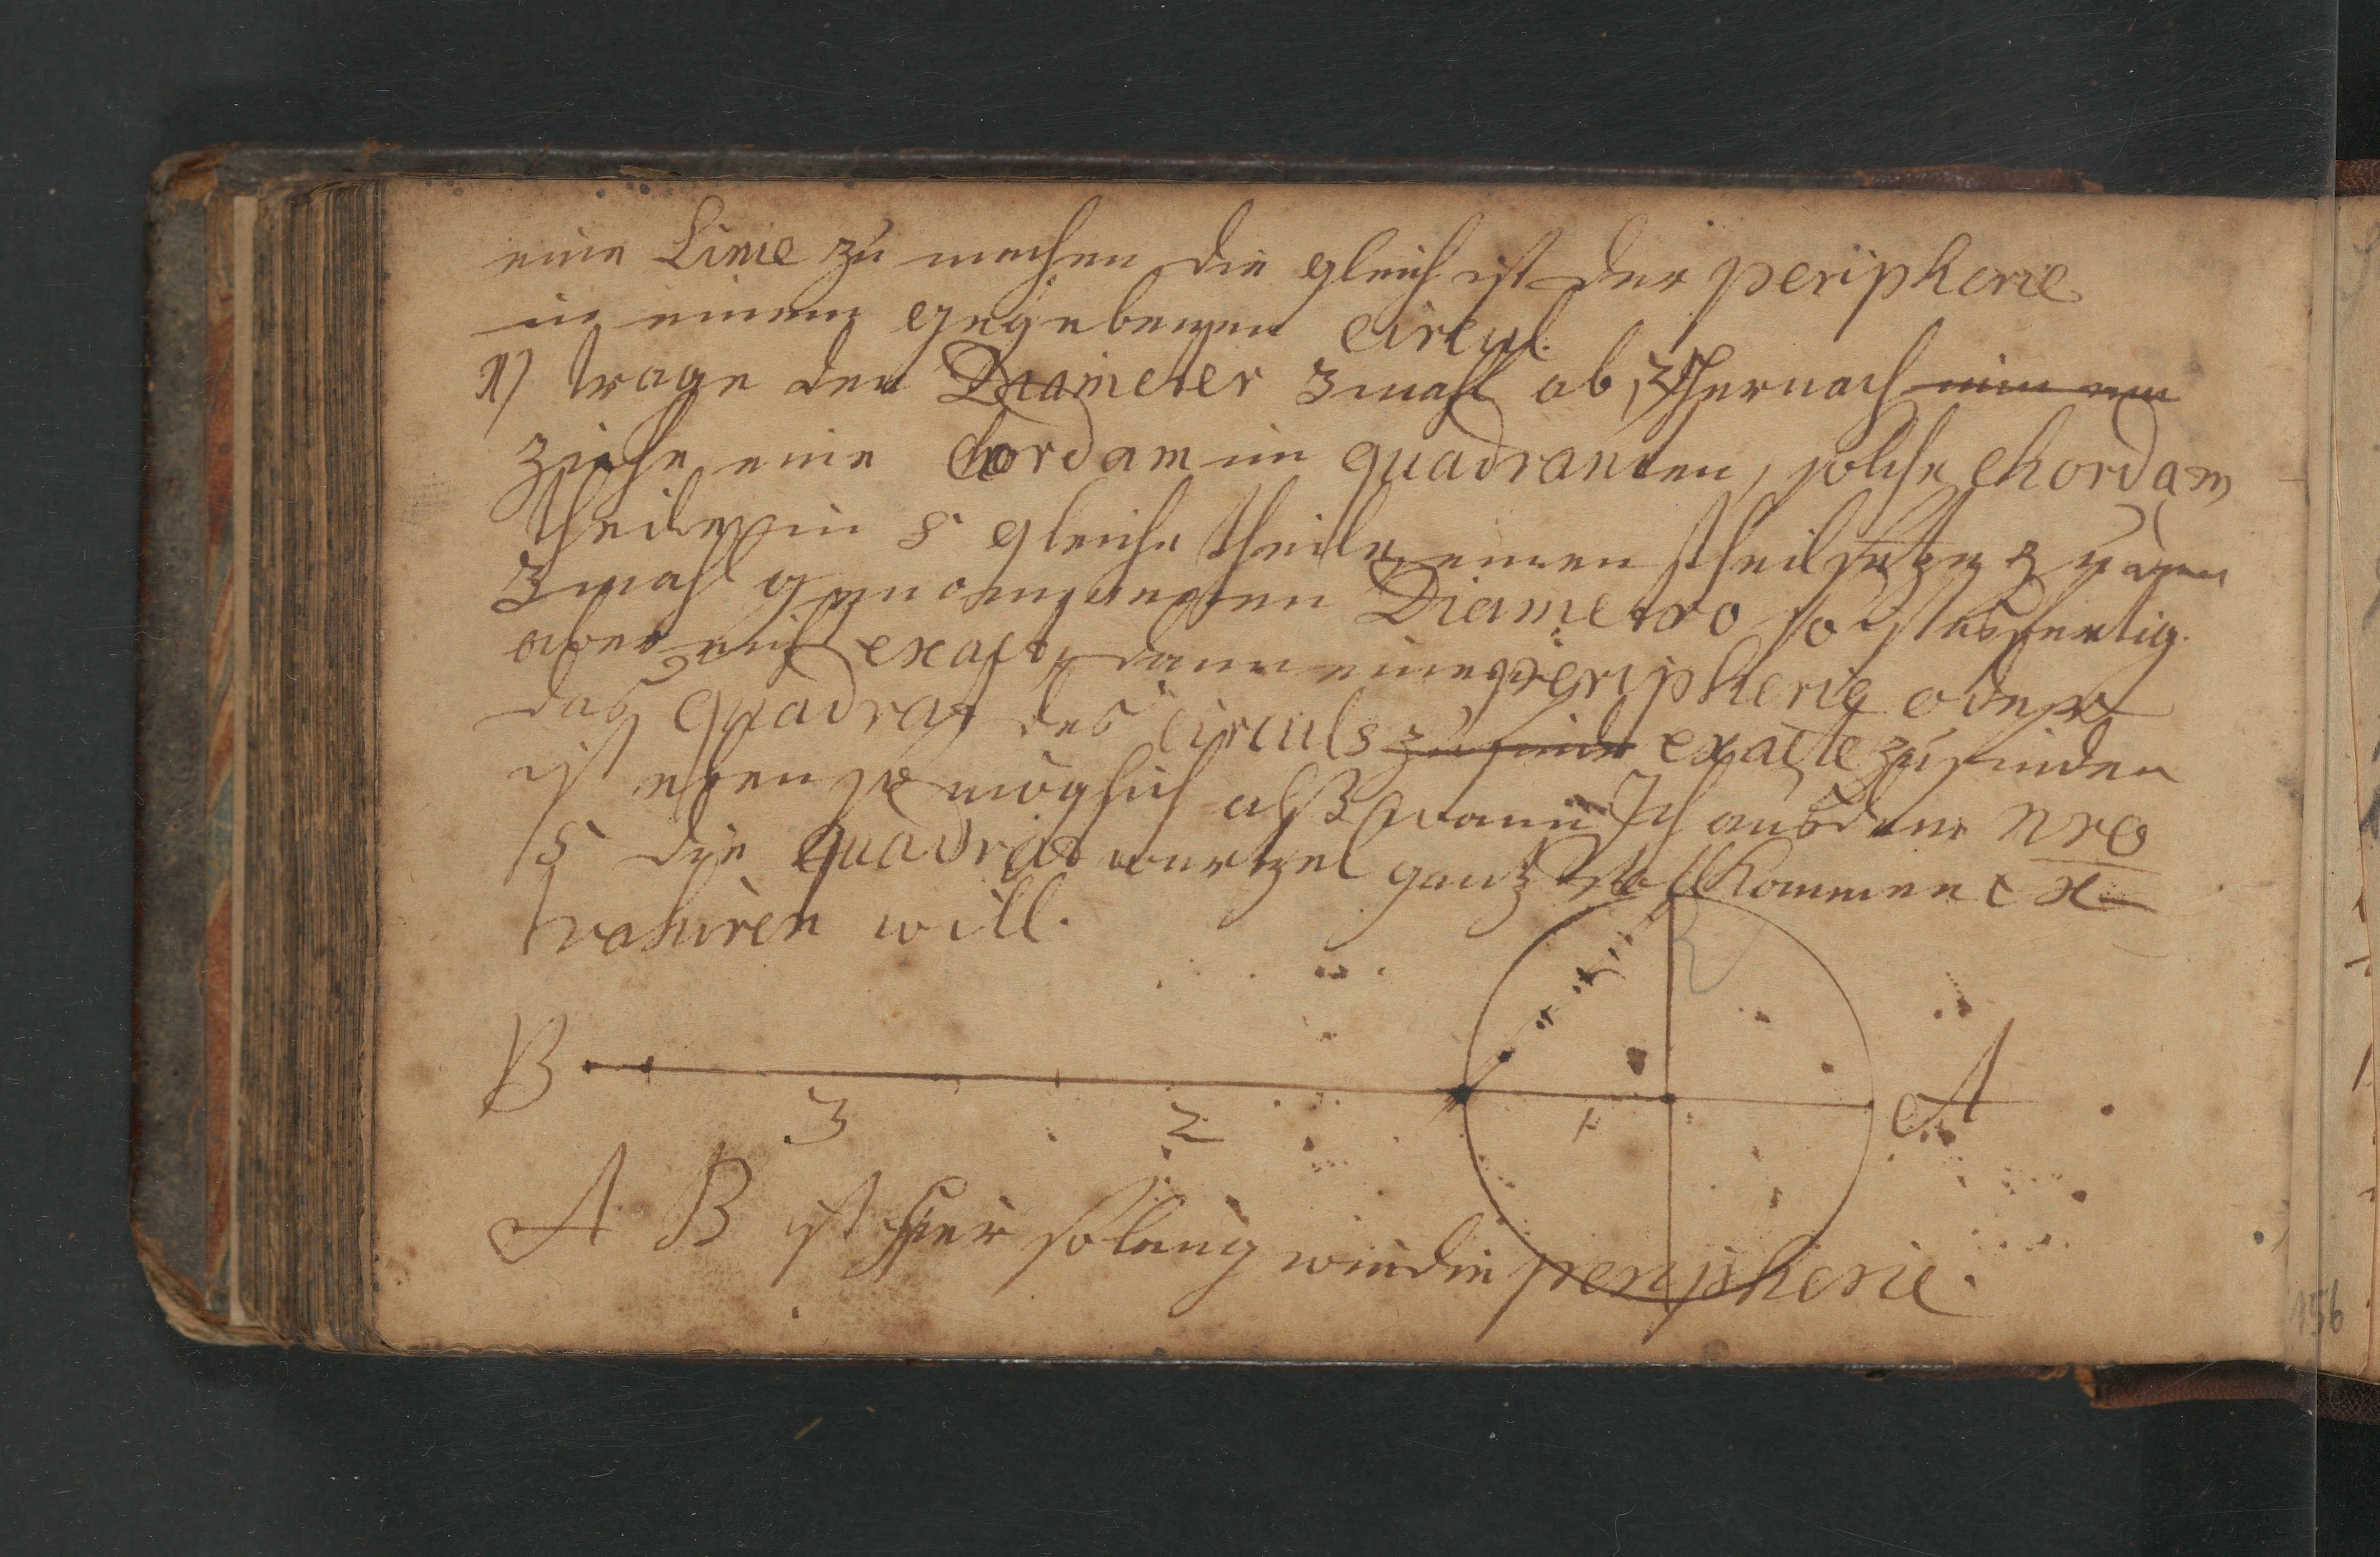 eine Linie zu machen die gleich ist der peripherie
in einem gegebenen circul.
1) trage den Diameter 3mahl ab, 2) hernach
ziehe eine Chordam im quadranten, solche chordam
theile in 5 gleiche theile, einen theil setze zu dem
3mahl genommenen Diametro so ist es fertig.
aber nicht exact, dann eine peripherie oder
das quadrat des circuls zu finde exacte zu finden
ist eben so möglich alß wann Ich aus dem nro
5 die quadrat wurtzel gantz vollkommen ex
trahiren will.
B 3 2 1 A
A B ist hier so lang wie die peripherie.
156